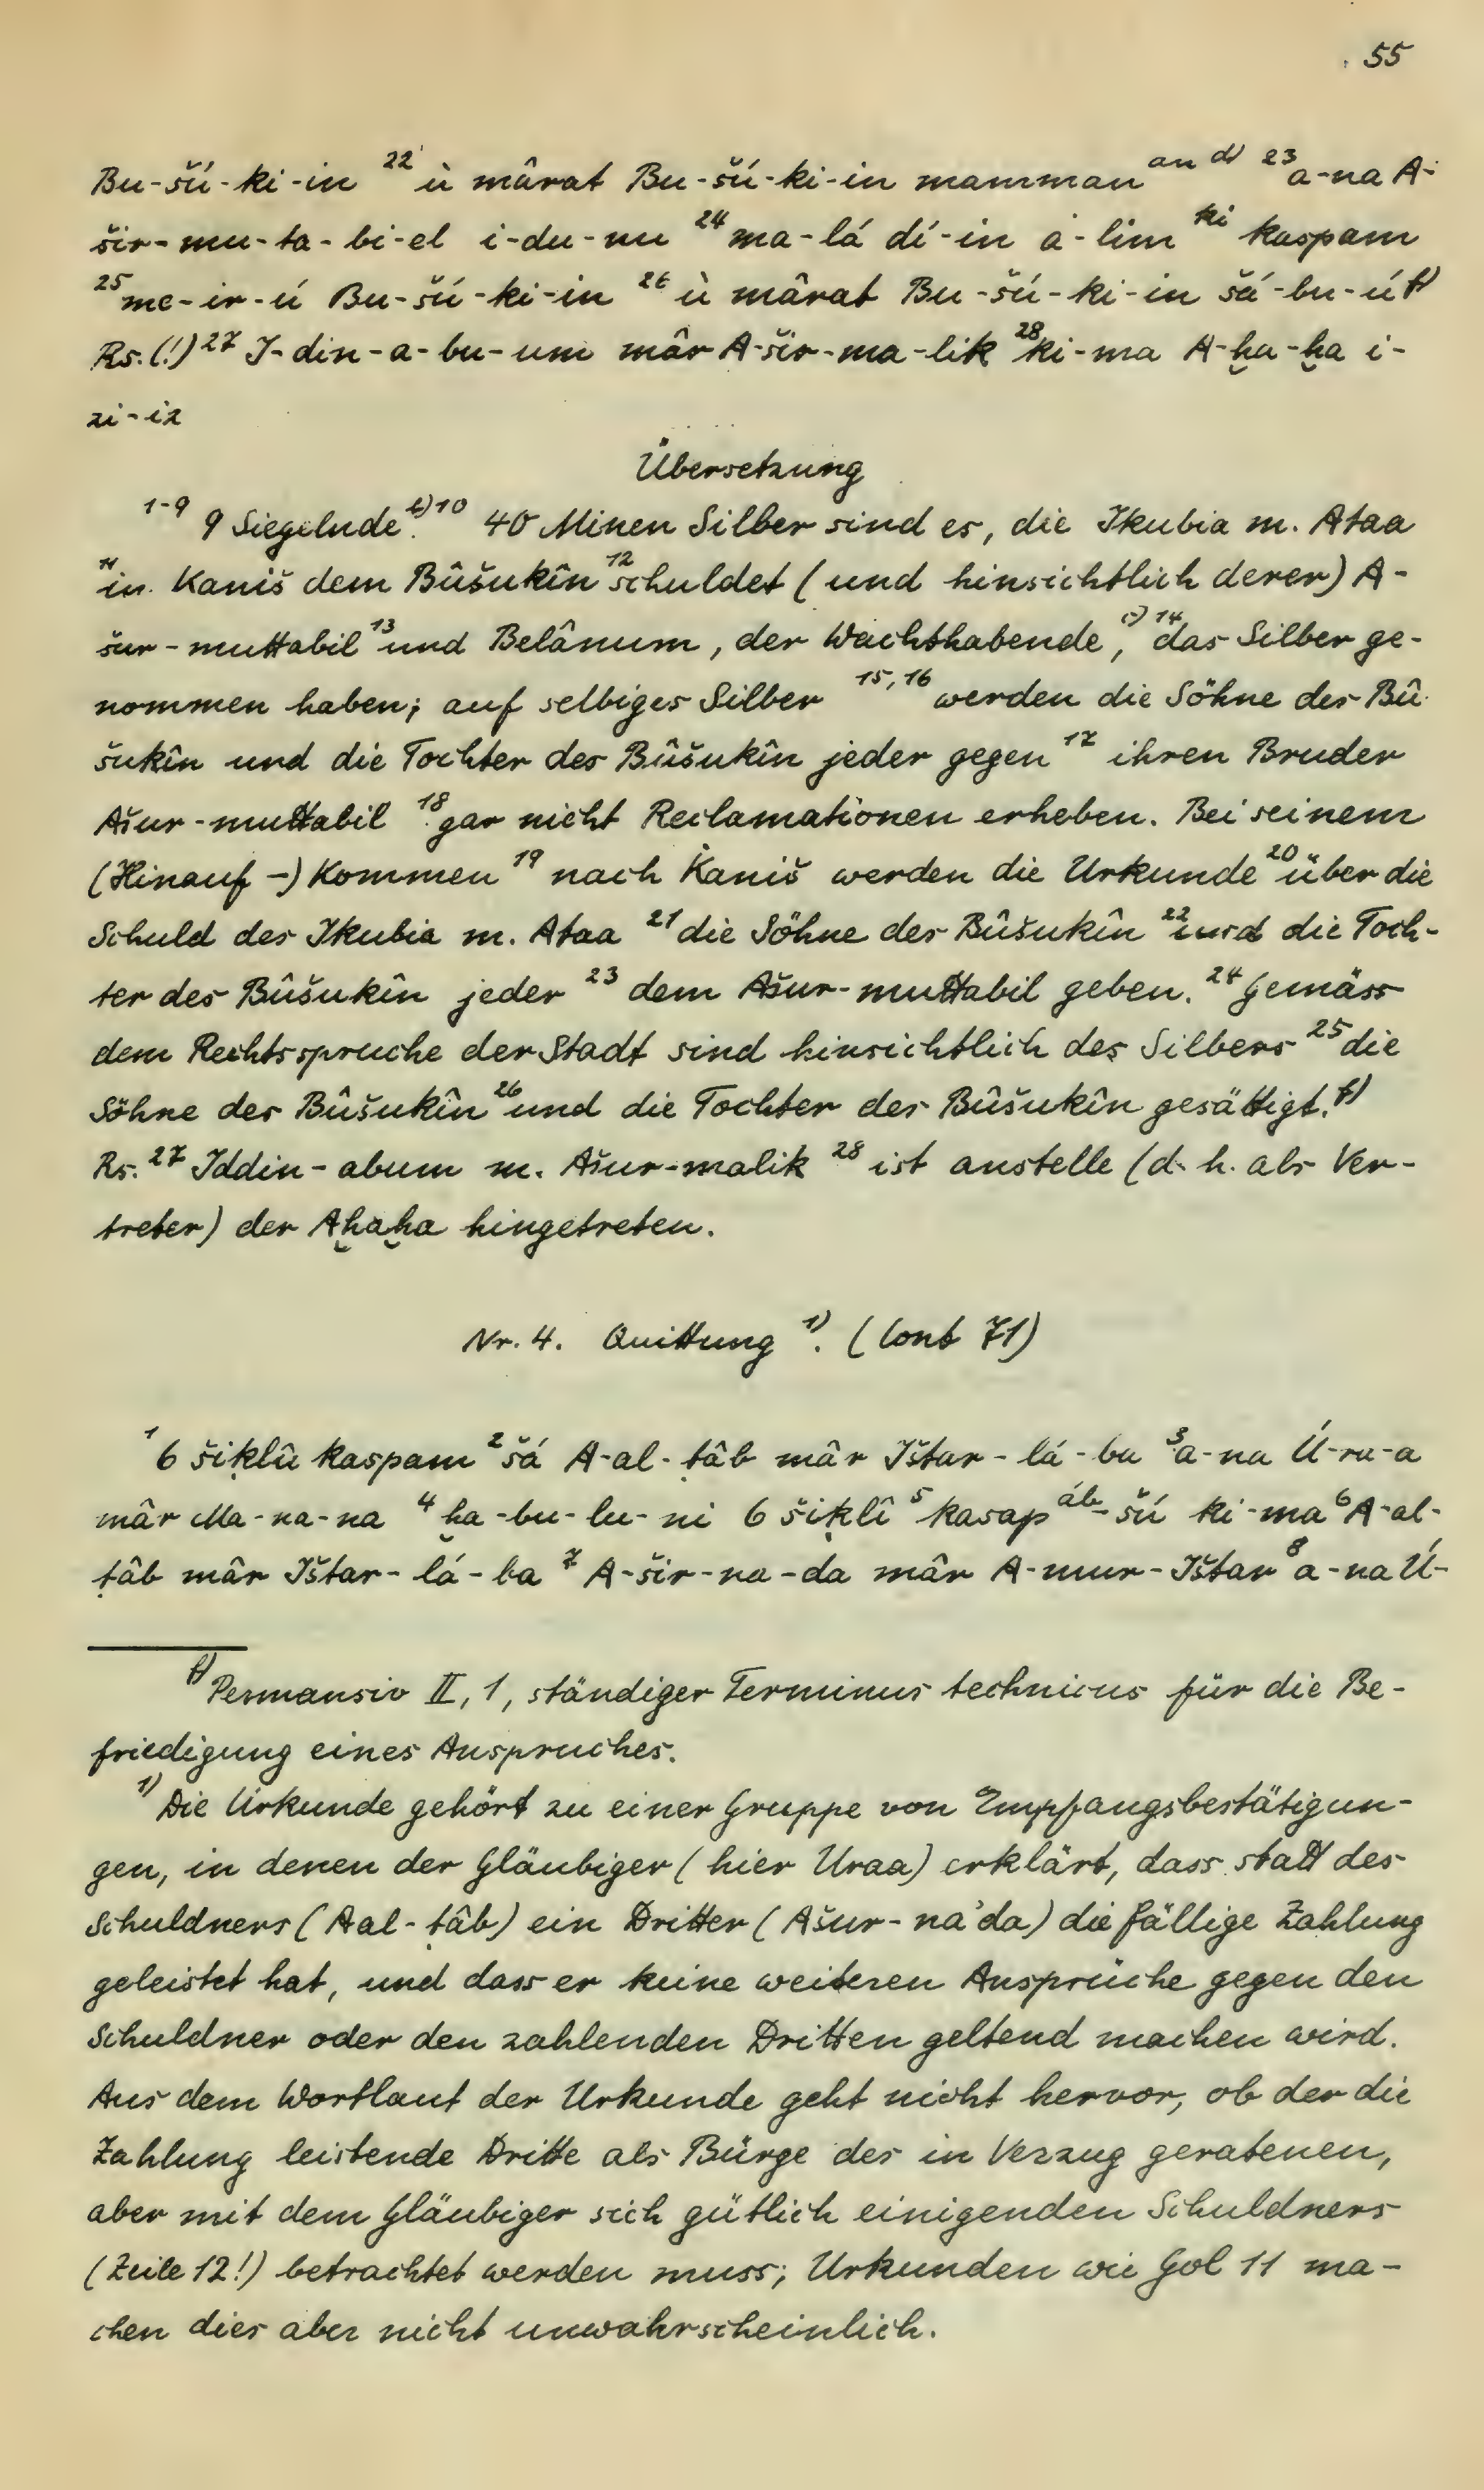 55
Bu-šú-ki-in ²² ù mârat Bu-šú-ki-in mamman ᵃⁿ ᵈ⁾ ²³ a-na A-
šir-mu-ta-bi-el i-du-nu ²⁴ ma-lá dí-in a-lim ᵏⁱ kaspam
²⁵ me-ir-ú Bu-šú-ki-in ²⁶ ù mârat Bu-šú-ki-in šá-bu-ú ᶠ⁾
Rs.(!) ²⁷ I-din-a-bu-um mâr A-šir-ma-lik ²⁸ ki-ma A-ḫa-ḫa i-
zi-iz
Übersetzung
¹⁻⁹ 9 Siegelnde. ᵇ⁾ ¹⁰ 40 Minen Silber sind es, die Ikubia m. Ataa
¹¹ in Kaniš dem Bûšukîn ¹² schuldet (und hinsichtlich derer) A-
šur-muttabil ¹³ und Belânum, der Wachthabende, ᶜ⁾ ¹⁴ das Silber ge-
nommen haben; auf selbiges Silber ¹⁵,¹⁶ werden die Söhne des Bû-
šukîn und die Tochter des Bûšukîn jeder gegen ¹⁷ ihren Bruder
Ašur-muttabil ¹⁸ gar nicht Reclamationen erheben. Bei seinem
(Hinauf-)Kommen ¹⁹ nach Kaniš werden die Urkunde ²⁰ über die
Schuld des Ikubia m. Ataa ²¹ die Söhne des Bûšukîn ²² und die Toch-
ter des Bûšukîn jeder ²³ dem Ašur-muttabil geben. ²⁴ Gemäss
dem Rechtsspruche der Stadt sind hinsichtlich des Silbers ²⁵ die
Söhne des Bûšukîn ²⁶ und die Tochter des Bûšukîn gesättigt. ᶠ⁾
Rs. ²⁷ Iddin-abum m. Ašur-malik ²⁸ ist anstelle (d. h. als Ver-
treter) der Aḫaḫa hingetreten.
Nr. 4. Quittung ¹⁾. (Cont 71)
¹ 6 šiḳlû kaspam ² šá A-al-ṭâb mâr Ištar-lá-ba ³ a-na Ú-ra-a
mâr Ma-na-na ⁴ ḫa-bu-lu-ni 6 šiḳlî ⁵ kasap ᵃ́ᵇ-šú ki-ma ⁶ A-al-
ṭâb mâr Ištar-lá-ba ⁷ A-šir-na-da mâr A-mur-Ištar ⁸ a-na Ú-
ᶠ⁾ Permansiv II, 1, ständiger Terminus technicus für die Be-
friedigung eines Anspruches.
¹⁾ Die Urkunde gehört zu einer Gruppe von Empfangsbestätigun-
gen, in denen der Gläubiger (hier Uraa) erklärt, dass statt des
Schuldners (Aal-ṭâb) ein Dritter (Ašur-na'da) die fällige Zahlung
geleistet hat, und dass er keine weiteren Ansprüche gegen den
Schuldner oder den zahlenden Dritten geltend machen wird.
Aus dem Wortlaut der Urkunde geht nicht hervor, ob der die
Zahlung leistende Dritte als Bürge des in Verzug geratenen,
aber mit dem Gläubiger sich gütlich einigenden Schuldners
(Zeile 12!) betrachtet werden muss; Urkunden wie Gol 11 ma-
chen dies aber nicht unwahrscheinlich.